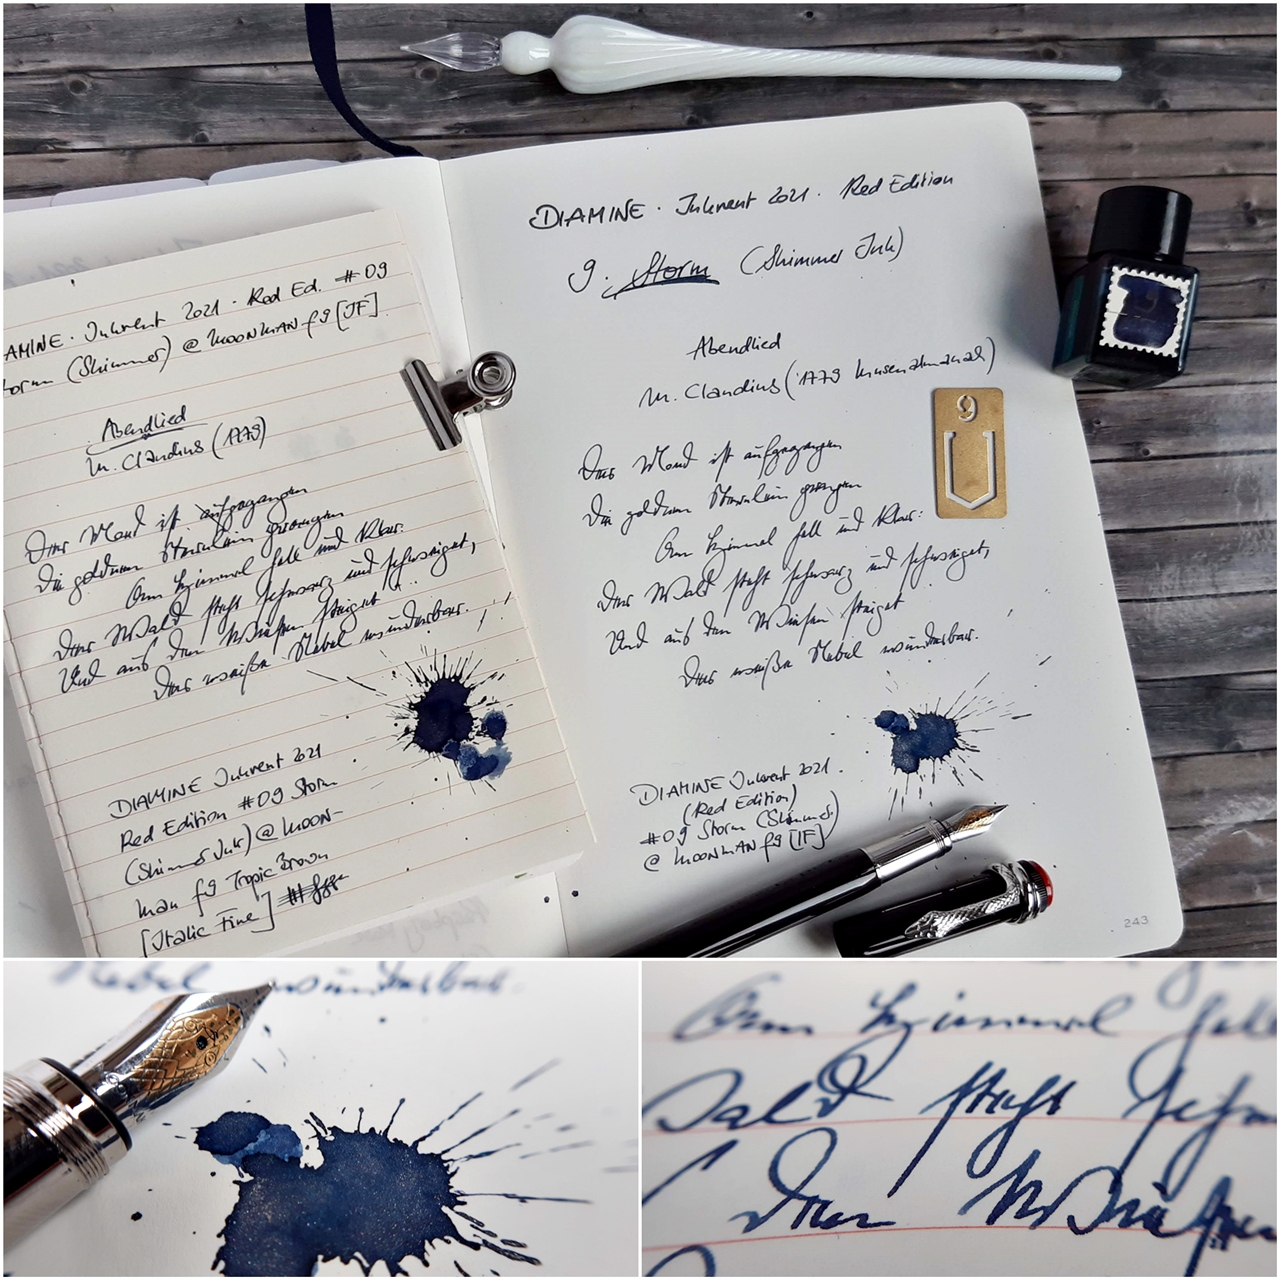 AMINE · Inkvent 2021 · Red Ed. #09
torm (Shimmer) @ MOONMAN f9 [IF].
Abendlied
M. Claudius (1779)
Der Mond ist aufgegangen
Die goldnen Sternlein prangen
Am Himmel hell und klar:
Der Wald steht schwarz und schweiget,
Und aus den Wiesen steiget
Der weiße Nebel wunderbar.
DIAMINE Inkvent 2021
Red Edition #09 Storm
(Shimmer Ink) @ MOON-
MAN f9 Tropic Brown
[Italic Fine]
DIAMINE · Inkvent 2021 · Red Edition
9. Storm (Shimmer Ink)
Abendlied
M. Claudius (1779 Musenalmanach)
9
Der Mond ist aufgegangen
Die goldnen Sternlein prangen
Am Himmel hell und klar:
Der Wald steht schwarz und schweiget,
Und aus den Wiesen steiget
Der weiße Nebel wunderbar.
DIAMINE Inkvent 2021.
(Red Edition)
#09 Storm (Shimmer)
@ MOONMAN f9 [IF]
243
Nebel wunderbar.
Am Himmel hell
Wald steht schw
den Wiesen